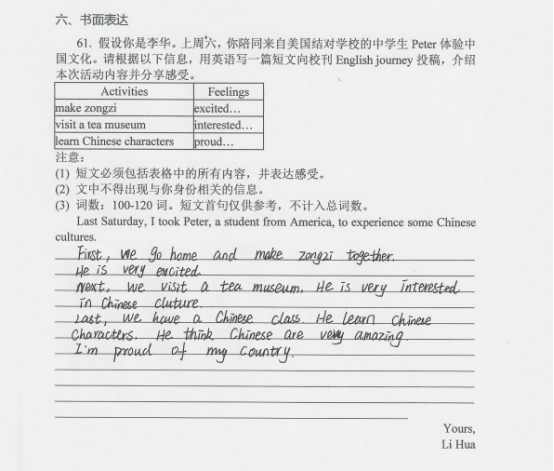 六、书面表达
61. 假设你是李华。上周六，你陪同来自美国结对学校的中学生 Peter 体验中
国文化。请根据以下信息，用英语写一篇短文向校刊 English journey 投稿，介绍
本次活动内容并分享感受。
Activities Feelings
make zongzi excited…
visit a tea museum interested…
learn Chinese characters proud…
注意：
(1) 短文必须包括表格中的所有内容，并表达感受。
(2) 文中不得出现与你身份相关的信息。
(3) 词数：100-120 词。短文首句仅供参考，不计入总词数。
Last Saturday, I took Peter, a student from America, to experience some Chinese
cultures.
First, we go home and make zongzi together.
He is very excited.
Next, we visit a tea museum. He is very interested
in Chinese cluture.
Last, we have a Chinese class. He learn Chinese
Characters. He think Chinese are very amazing.
I'm proud of my country.
Yours,
Li Hua